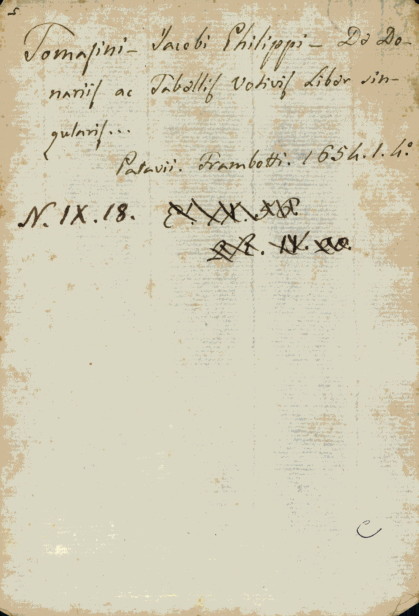 Tomasini- Jacobi Philippi- De Do-
nariis ac Tabellis Votivis Liber sin-
gularis...
Patavii. Frambotti. 1654. 1. 4º
N. IX. 18.